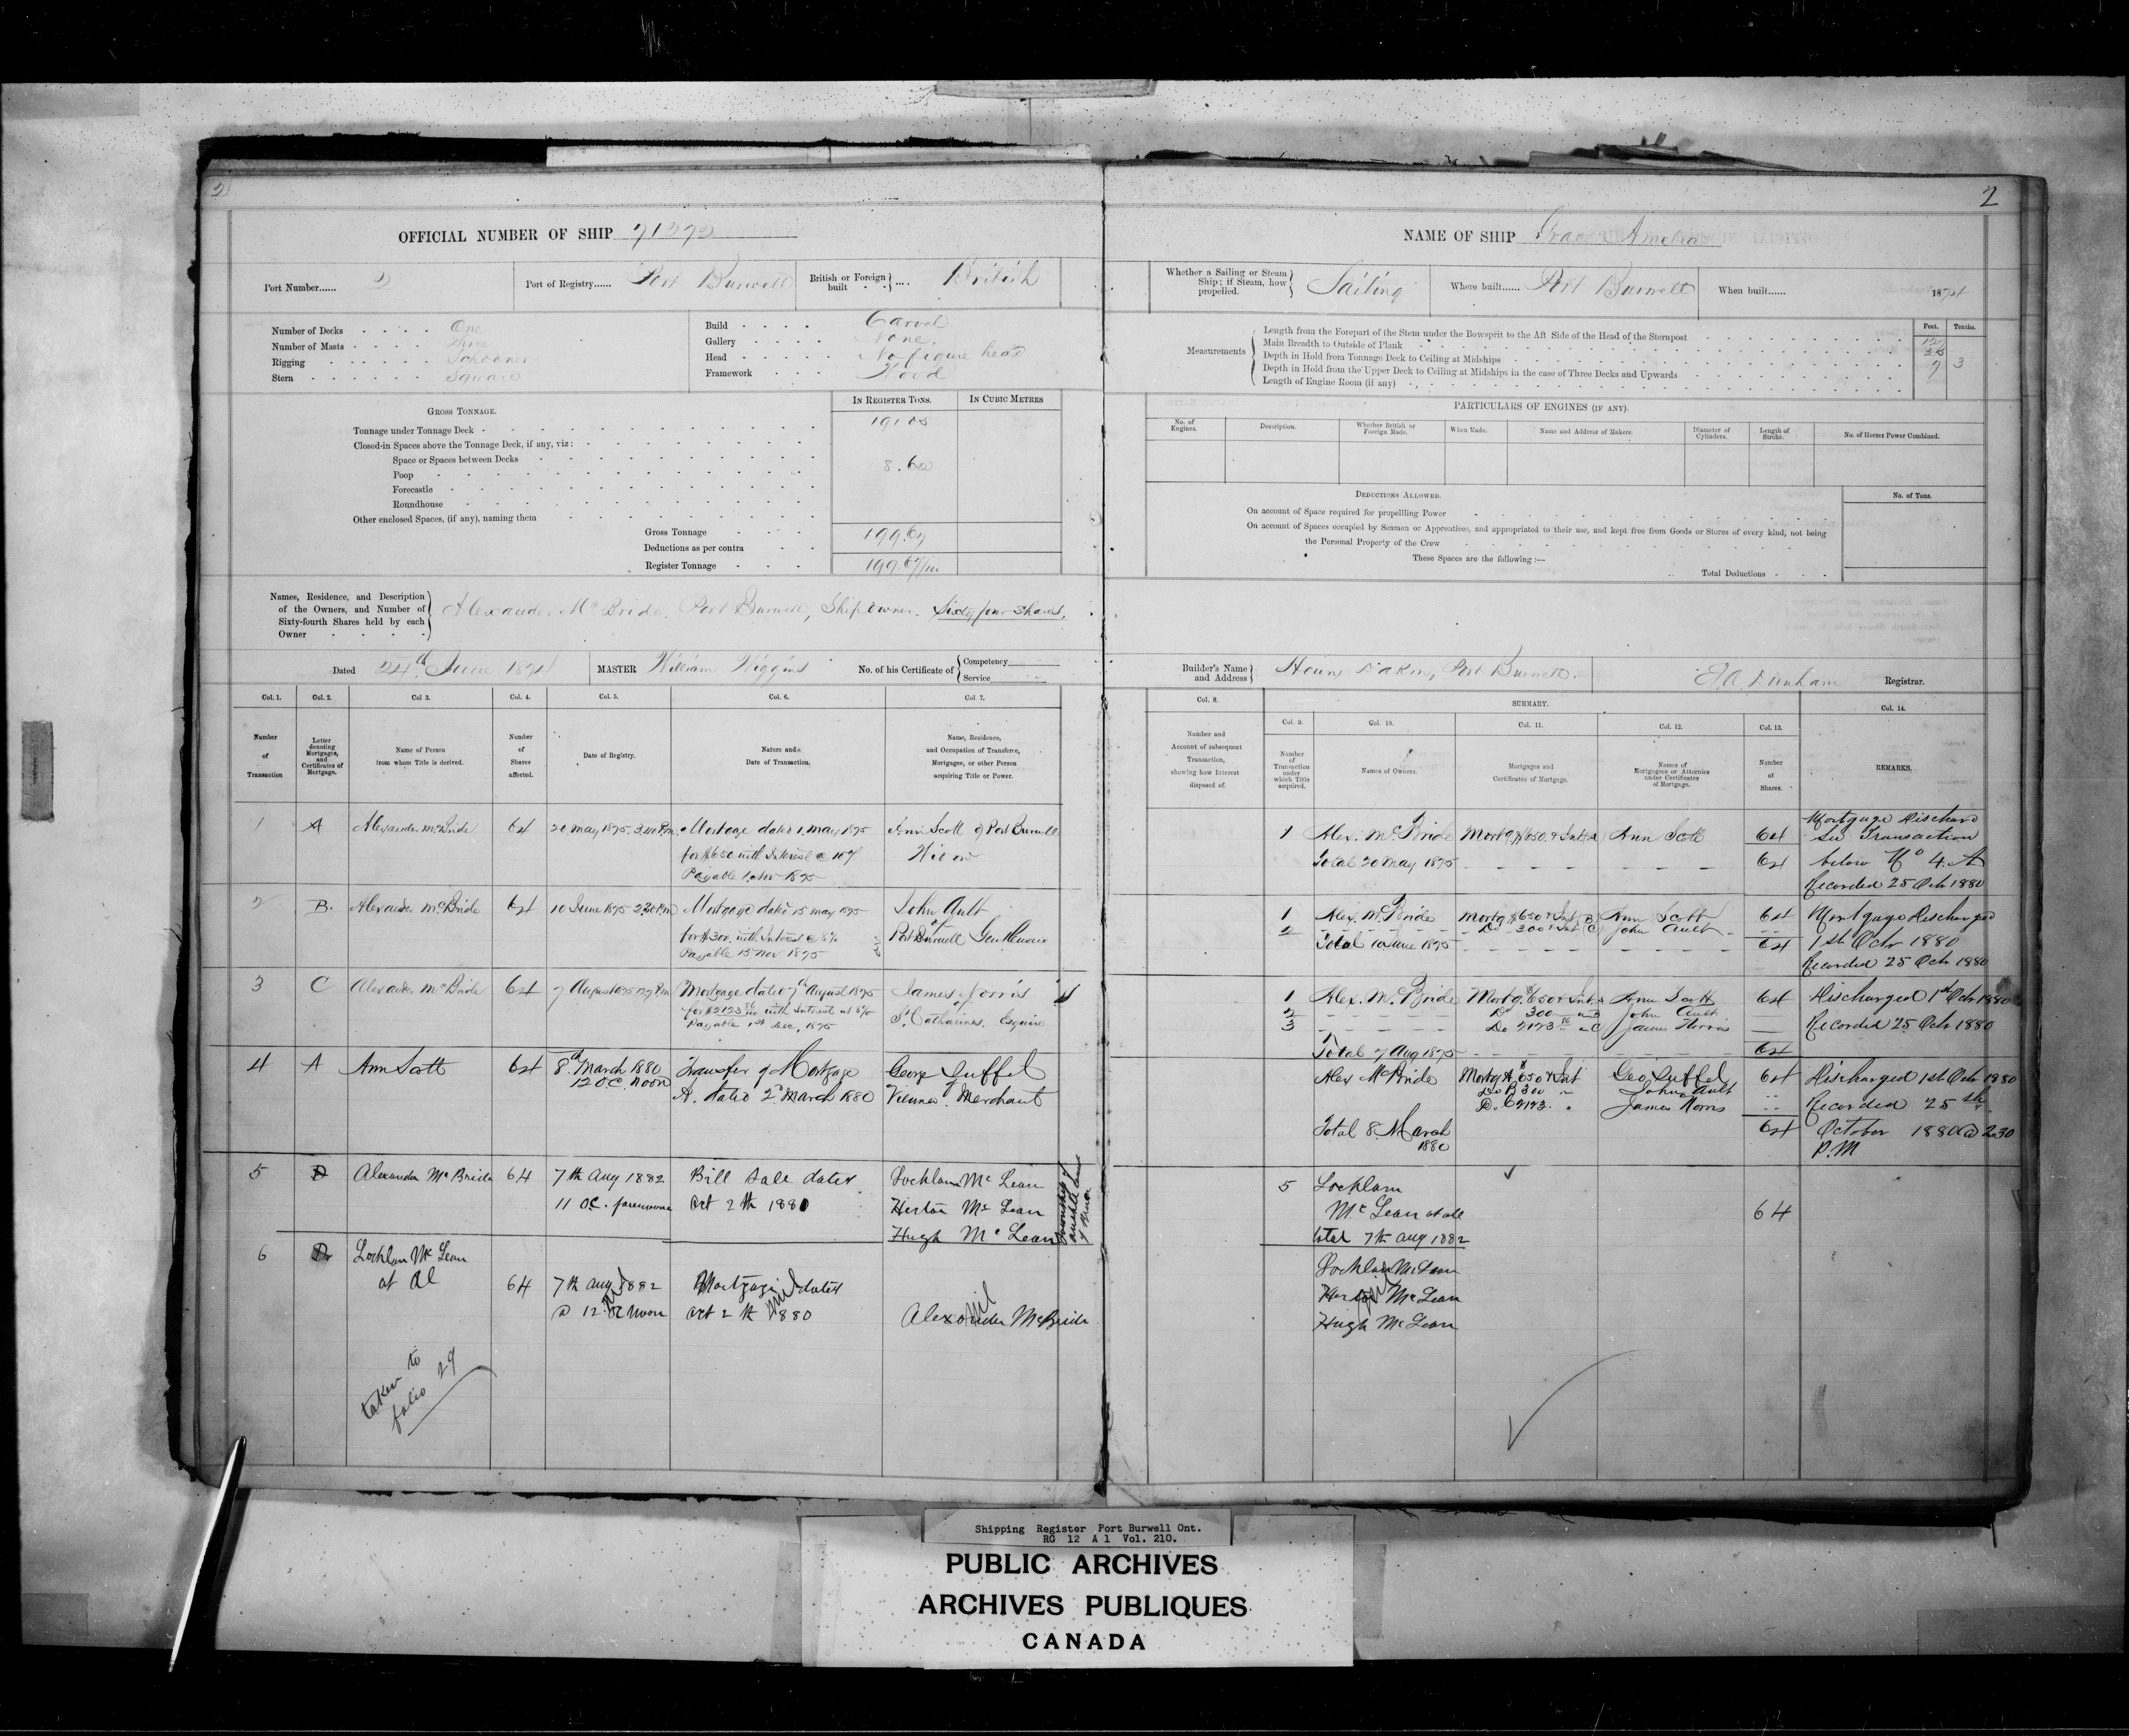 2
OFFICIAL NUMBER OF SHIP
Port Number...... 2
Port of Registry...... Port Burwell
British or Foreign built .... British
Number of Decks One
Number of Masts Three
Rigging Schooner
Stern Square
Build Carvel
Gallery None.
Head No figure head
Framework Wood
GROSS TONNAGE.
IN REGISTER TONS.
IN CUBIC METRES
Tonnage under Tonnage Deck 191.05
Closed-in Spaces above the Tonnage Deck, if any, viz:
Space or Spaces between Decks
Poop 8.62
Forecastle
Roundhouse
Other enclosed Spaces, (if any), naming them
Gross Tonnage 199.67
Deductions as per contra
Register Tonnage 199.67/100
Names, Residence, and Description of the Owners, and Number of Sixty-fourth Shares held by each Owner
Alexander McBride, Port Burwell, Ship owner. Sixty four Shares.
Dated 24th June 1874
MASTER William Wiggins
No. of his Certificate of Competency Service
Col. 1. Col. 2. Col 3. Col. 4. Col. 5. Col. 6. Col. 7.
Number of Transaction
Letter denoting Mortgages, and Certificates of Mortgage.
Name of Person from whom Title is derived.
Number of Shares affected.
Date of Registry.
Nature and Date of Transaction.
Name, Residence, and Occupation of Transferee, Mortgagee, or other Person acquiring Title or Power.
1 A Alexander McBride 64 20 May 1875 3.40 P.m. Mortgage dated 1, May 1875 Ann Scott of Port Burwell
for $650 with Interest @ 10%
Payable 1, Nov 1875
2 B. Alexander McBride 64 10 June 1875 2.30 P.m Mortgage dated 15 may 1875 John Ault
for $300. with Interest @ 8% of Port Burwell Gentleman
Payable 15 Nov 1875
3 C Alexander McBride 64 7 August 1875 Mortgage dated 7th August 1875 James Norris
for $2123 with Interest at 8% of St Catharines. Esquire
Payable 1st Dec, 1875
4 A Ann Scott 64 8th March 1880 Transfer of Mortgage George Suffel
12 O.C. Noon A. dated 2d March 1880 Vienna, Merchant
5 Alexander McBride 64 7th Aug 1882 Bill Sale dated Lochlan McLean
11 O.C. forenoon Oct 2th 1880 Hector McLean
Hugh McLean
6 Lochlan McLean
at Al 64 7th Aug 1882 Mortgage dated
@ 12 Noon Oct 2th 1880 Alexander McBride
nil
taken to
folio 29
2
NAME OF SHIP Grace Amelia
Whether a Sailing or Steam Ship; if Steam, how propelled. Sailing
Where built...... Port Burwell
When built...... 1874
Measurements
Feet. Tenths.
Length from the Forepart of the Stem under the Bowsprit to the Aft Side of the Head of the Sternpost
Main Breadth to Outside of Plank
Depth in Hold from Tonnage Deck to Ceiling at Midships 9 3
Depth in Hold from the Upper Deck to Ceiling at Midships in the case of Three Decks and Upwards
Length of Engine Room (if any)
PARTICULARS OF ENGINES (IF ANY).
No. of Engines.
Description.
Whether British or Foreign Made.
When Made.
Name and Address of Makers.
Diameter of Cylinders.
Length of Stroke.
No. of Horses Power Combined.
DEDUCTIONS ALLOWED.
No. of Tons.
On account of Space required for propelling Power
On account of Spaces occupied by Seamen or Apprentices, and appropriated to their use, and kept free from Goods or Stores of every kind, not being
the Personal Property of the Crew
These Spaces are the following :—
Total Deductions
Builder's Name and Address Port Burwell.
Dunham Registrar.
Col. 8.
SUMMARY.
Col. 9. Col. 10. Col. 11. Col. 12. Col. 13. Col. 14.
Number and Account of subsequent Transaction, showing how Interest disposed of.
Number of Transaction under which Title acquired.
Names of Owners.
Mortgages and Certificates of Mortgage.
Names of Mortgagees or Attornies under Certificates of Mortgage.
Number of Shares.
REMARKS.
1 Alex. McBride Mortg $650. & Int A Ann Scott 64 Mortgage Discharged
Total 20 May 1875 64 See Transaction
below No 4. A
Recorded 25 Octr 1880
1 Alex. McBride Mortg $650 & Int Ann Scott 64 Mortgage Discharged
2 Do 300 & Int John Ault
Total 10 June 1875 64 1st Octr 1880
Recorded 25 Octr 1880
1 Alex. McBride Mortg. $650 & Int A Ann Scott 64 Discharged 1st Octr 1880
2 Do 300 B John Ault
3 Do 2123 C James Norris Recorded 25 Octr 1880
Total 7 Aug 1875 64
Alex McBride Mortg A $650 & Int Geo Suffel 64 Discharged 1st Octr 1880
Do B 300 John Ault
Do C 2123. James Norris Recorded 25th
Total 8 March 1880 64 October 1880 @ 2.30
P.M
5 Lochlan
McLean at all 64
total 7th Aug 1882
Lochlan McLean
Hector McLean
Hugh McLean
nil
Shipping Register Port Burwell Ont.
RG 12 A 1 Vol. 210.
PUBLIC ARCHIVES
ARCHIVES PUBLIQUES
CANADA